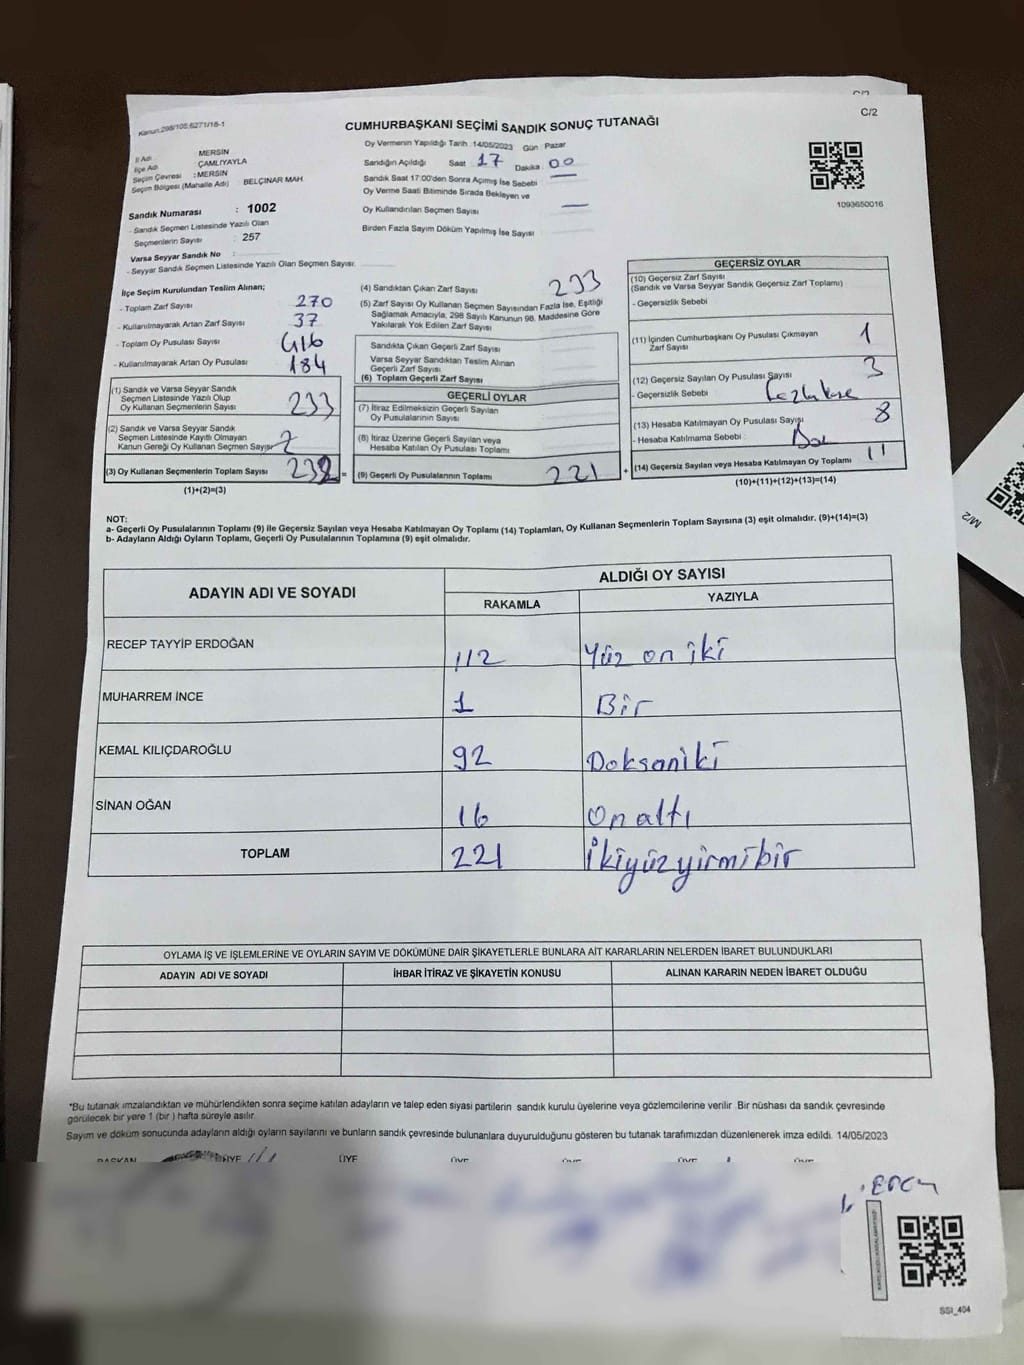 C/2
Kanun.298/105;6271/18-1
CUMHURBAŞKANI SEÇİMİ SANDIK SONUÇ TUTANAĞI
C/2
Oy Vermenin Yapıldığı Tarih : 14/05/2023 Gün : Pazar
İl Adı : MERSİN
İlçe Adı ÇAMLIYAYLA
Seçim Çevresi : MERSİN
Seçim Bölgesi (Mahalle Adı) BELÇINAR MAH.
Sandığın Açıldığı Saat 17 Dakika 00
Sandık Saat 17:00'den Sonra Açılmış İse Sebebi
Oy Verme Saati Bitiminde Sırada Bekleyen ve
Oy Kullandırılan Seçmen Sayısı
Birden Fazla Sayım Döküm Yapılmış İse Sayısı
1093650016
Sandık Numarası : 1002
- Sandık Seçmen Listesinde Yazılı Olan
Seçmenlerin Sayısı : 257
Varsa Seyyar Sandık No :
- Seyyar Sandık Seçmen Listesinde Yazılı Olan Seçmen Sayısı:
İlçe Seçim Kurulundan Teslim Alınan;
- Toplam Zarf Sayısı 270
- Kullanılmayarak Artan Zarf Sayısı 37
- Toplam Oy Pusulası Sayısı 416
- Kullanılmayarak Artan Oy Pusulası 184
(1) Sandık ve Varsa Seyyar Sandık
Seçmen Listesinde Yazılı Olup
Oy Kullanan Seçmenlerin Sayısı 233
(2) Sandık ve Varsa Seyyar Sandık
Seçmen Listesinde Kayıtlı Olmayan
Kanun Gereği Oy Kullanan Seçmen Sayısı
(3) Oy Kullanan Seçmenlerin Toplam Sayısı =
(1)+(2)=(3)
(4) Sandıktan Çıkan Zarf Sayısı 233
(5) Zarf Sayısı Oy Kullanan Seçmen Sayısından Fazla İse, Eşitliği
Sağlamak Amacıyla, 298 Sayılı Kanunun 98. Maddesine Göre
Yakılarak Yok Edilen Zarf Sayısı
Sandıkta Çıkan Geçerli Zarf Sayısı
Varsa Seyyar Sandıktan Teslim Alınan
Geçerli Zarf Sayısı
(6) Toplam Geçerli Zarf Sayısı
GEÇERLİ OYLAR
(7) İtiraz Edilmeksizin Geçerli Sayılan
Oy Pusulalarının Sayısı
(8) İtiraz Üzerine Geçerli Sayılan veya
Hesaba Katılan Oy Pusulası Toplamı
(9) Geçerli Oy Pusulalarının Toplamı 221 +
GEÇERSİZ OYLAR
(10) Geçersiz Zarf Sayısı
(Sandık ve Varsa Seyyar Sandık Geçersiz Zarf Toplamı)
- Geçersizlik Sebebi
(11) İçinden Cumhurbaşkanı Oy Pusulası Çıkmayan
Zarf Sayısı 1
(12) Geçersiz Sayılan Oy Pusulası Sayısı 3
- Geçersizlik Sebebi
(13) Hesaba Katılmayan Oy Pusulası Sayısı 8
- Hesaba Katılmama Sebebi :
(14) Geçersiz Sayılan veya Hesaba Katılmayan Oy Toplamı 11
(10)+(11)+(12)+(13)=(14)
NOT:
a- Geçerli Oy Pusulalarının Toplamı (9) ile Geçersiz Sayılan veya Hesaba Katılmayan Oy Toplamı (14) Toplamları, Oy Kullanan Seçmenlerin Toplam Sayısına (3) eşit olmalıdır. (9)+(14)=(3)
b- Adayların Aldığı Oyların Toplamı, Geçerli Oy Pusulalarının Toplamına (9) eşit olmalıdır.
ADAYIN ADI VE SOYADI
ALDIĞI OY SAYISI
RAKAMLA YAZIYLA
RECEP TAYYİP ERDOĞAN 112 Yüz on iki
MUHARREM İNCE 1 Bir
KEMAL KILIÇDAROĞLU 92 Doksaniki
SİNAN OĞAN 16 Onaltı
TOPLAM 221 İkiyüzyirmibir
OYLAMA İŞ VE İŞLEMLERİNE VE OYLARIN SAYIM VE DÖKÜMÜNE DAİR ŞİKAYETLERLE BUNLARA AİT KARARLARIN NELERDEN İBARET BULUNDUKLARI
ADAYIN ADI VE SOYADI İHBAR İTİRAZ VE ŞİKAYETİN KONUSU ALINAN KARARIN NEDEN İBARET OLDUĞU
*Bu tutanak imzalandıktan ve mühürlendikten sonra seçime katılan adayların ve talep eden siyasi partilerin sandık kurulu üyelerine veya gözlemcilerine verilir .Bir nüshası da sandık çevresinde
görülecek bir yere 1 (bir ) hafta süreyle asılır.
Sayım ve döküm sonucunda adayların aldığı oyların sayılarını ve bunların sandık çevresinde bulunanlara duyurulduğunu gösteren bu tutanak tarafımızdan düzenlenerek imza edildi. 14/05/2023
BAŞKAN ÜYE ÜYE ÜYE ÜYE ÜYE ÜYE
SSİ_404
M/2